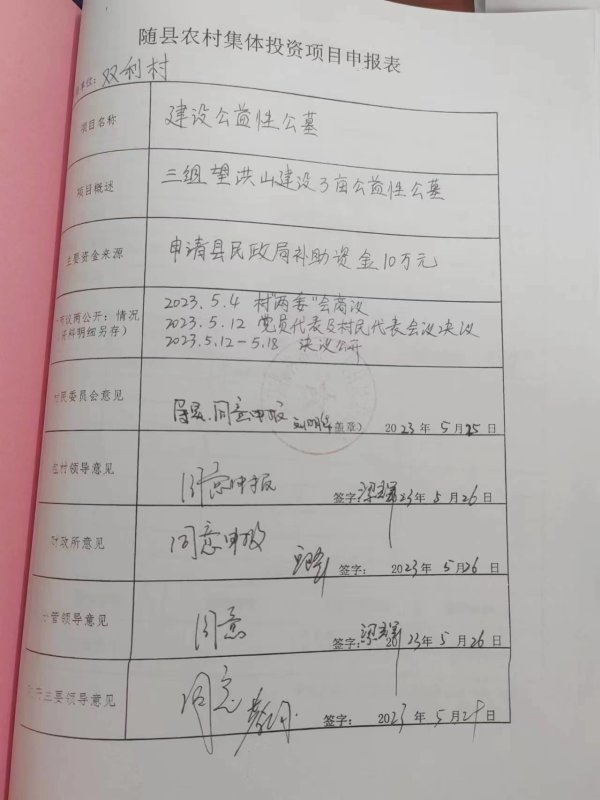 随县农村集体投资项目申报表
单位：双利村
项目名称
建设公益性公墓
项目概述
三组望洪山建设3亩公益性公墓
主要资金来源
申请县民政局补助资金10万元
议两公开：情况
明细另存）
2023.5.4 村"两委"会商议
2023.5.12 党员代表及村民代表会议决议
2023.5.12-5.18 决议公开
民委员会意见
同意申报
盖章） 2023年5月25日
包村领导意见
同意申报
签字： 23年5月26日
财政所意见
同意申报
签字： 2023年5月26日
管领导意见
同意
签字： 23年5月26日
主要领导意见
同意
签字： 2023年5月2日